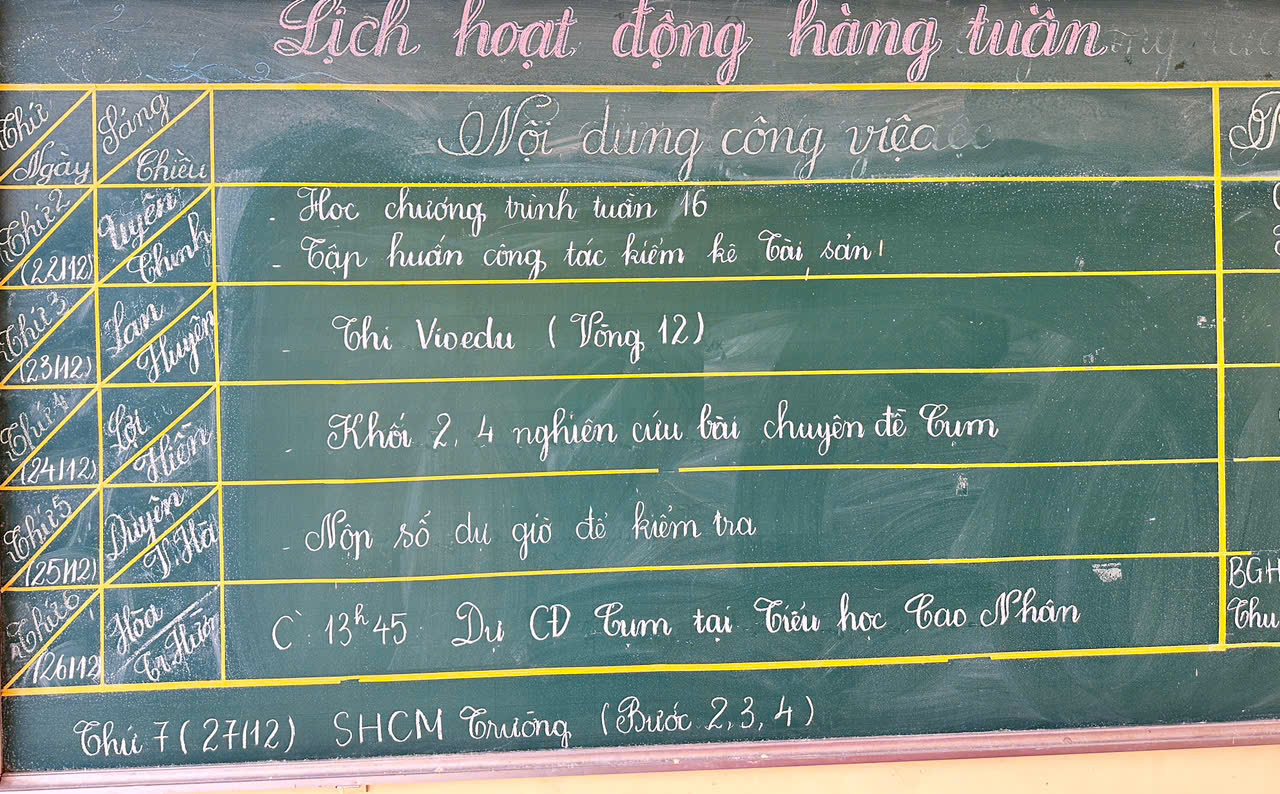 Lịch hoạt động hàng tuần
Thứ Ngày Sáng Chiều Nội dung công việc
Thứ 2 (22/12) Uyên Chinh
- Học chương trình tuần 16
- Tập huấn công tác kiểm kê Tài sản
Thứ 3 (23/12) Lan Huyên
- Thi Vioedu (Vòng 12)
Thứ 4 (24/12) Lợi Hiền
- Khối 2, 4 nghiên cứu bài chuyên đề Cụm
Thứ 5 (25/12) Duyên T.Hà
- Nộp sổ dự giờ để kiểm tra
BGH
Thứ 6 (26/12 Hòa
C: 13h45 Dự CĐ Cụm tại Tiểu học Cao Nhân
Thu
Thứ 7 (27/12) SHCM Trường (Bước 2, 3, 4)